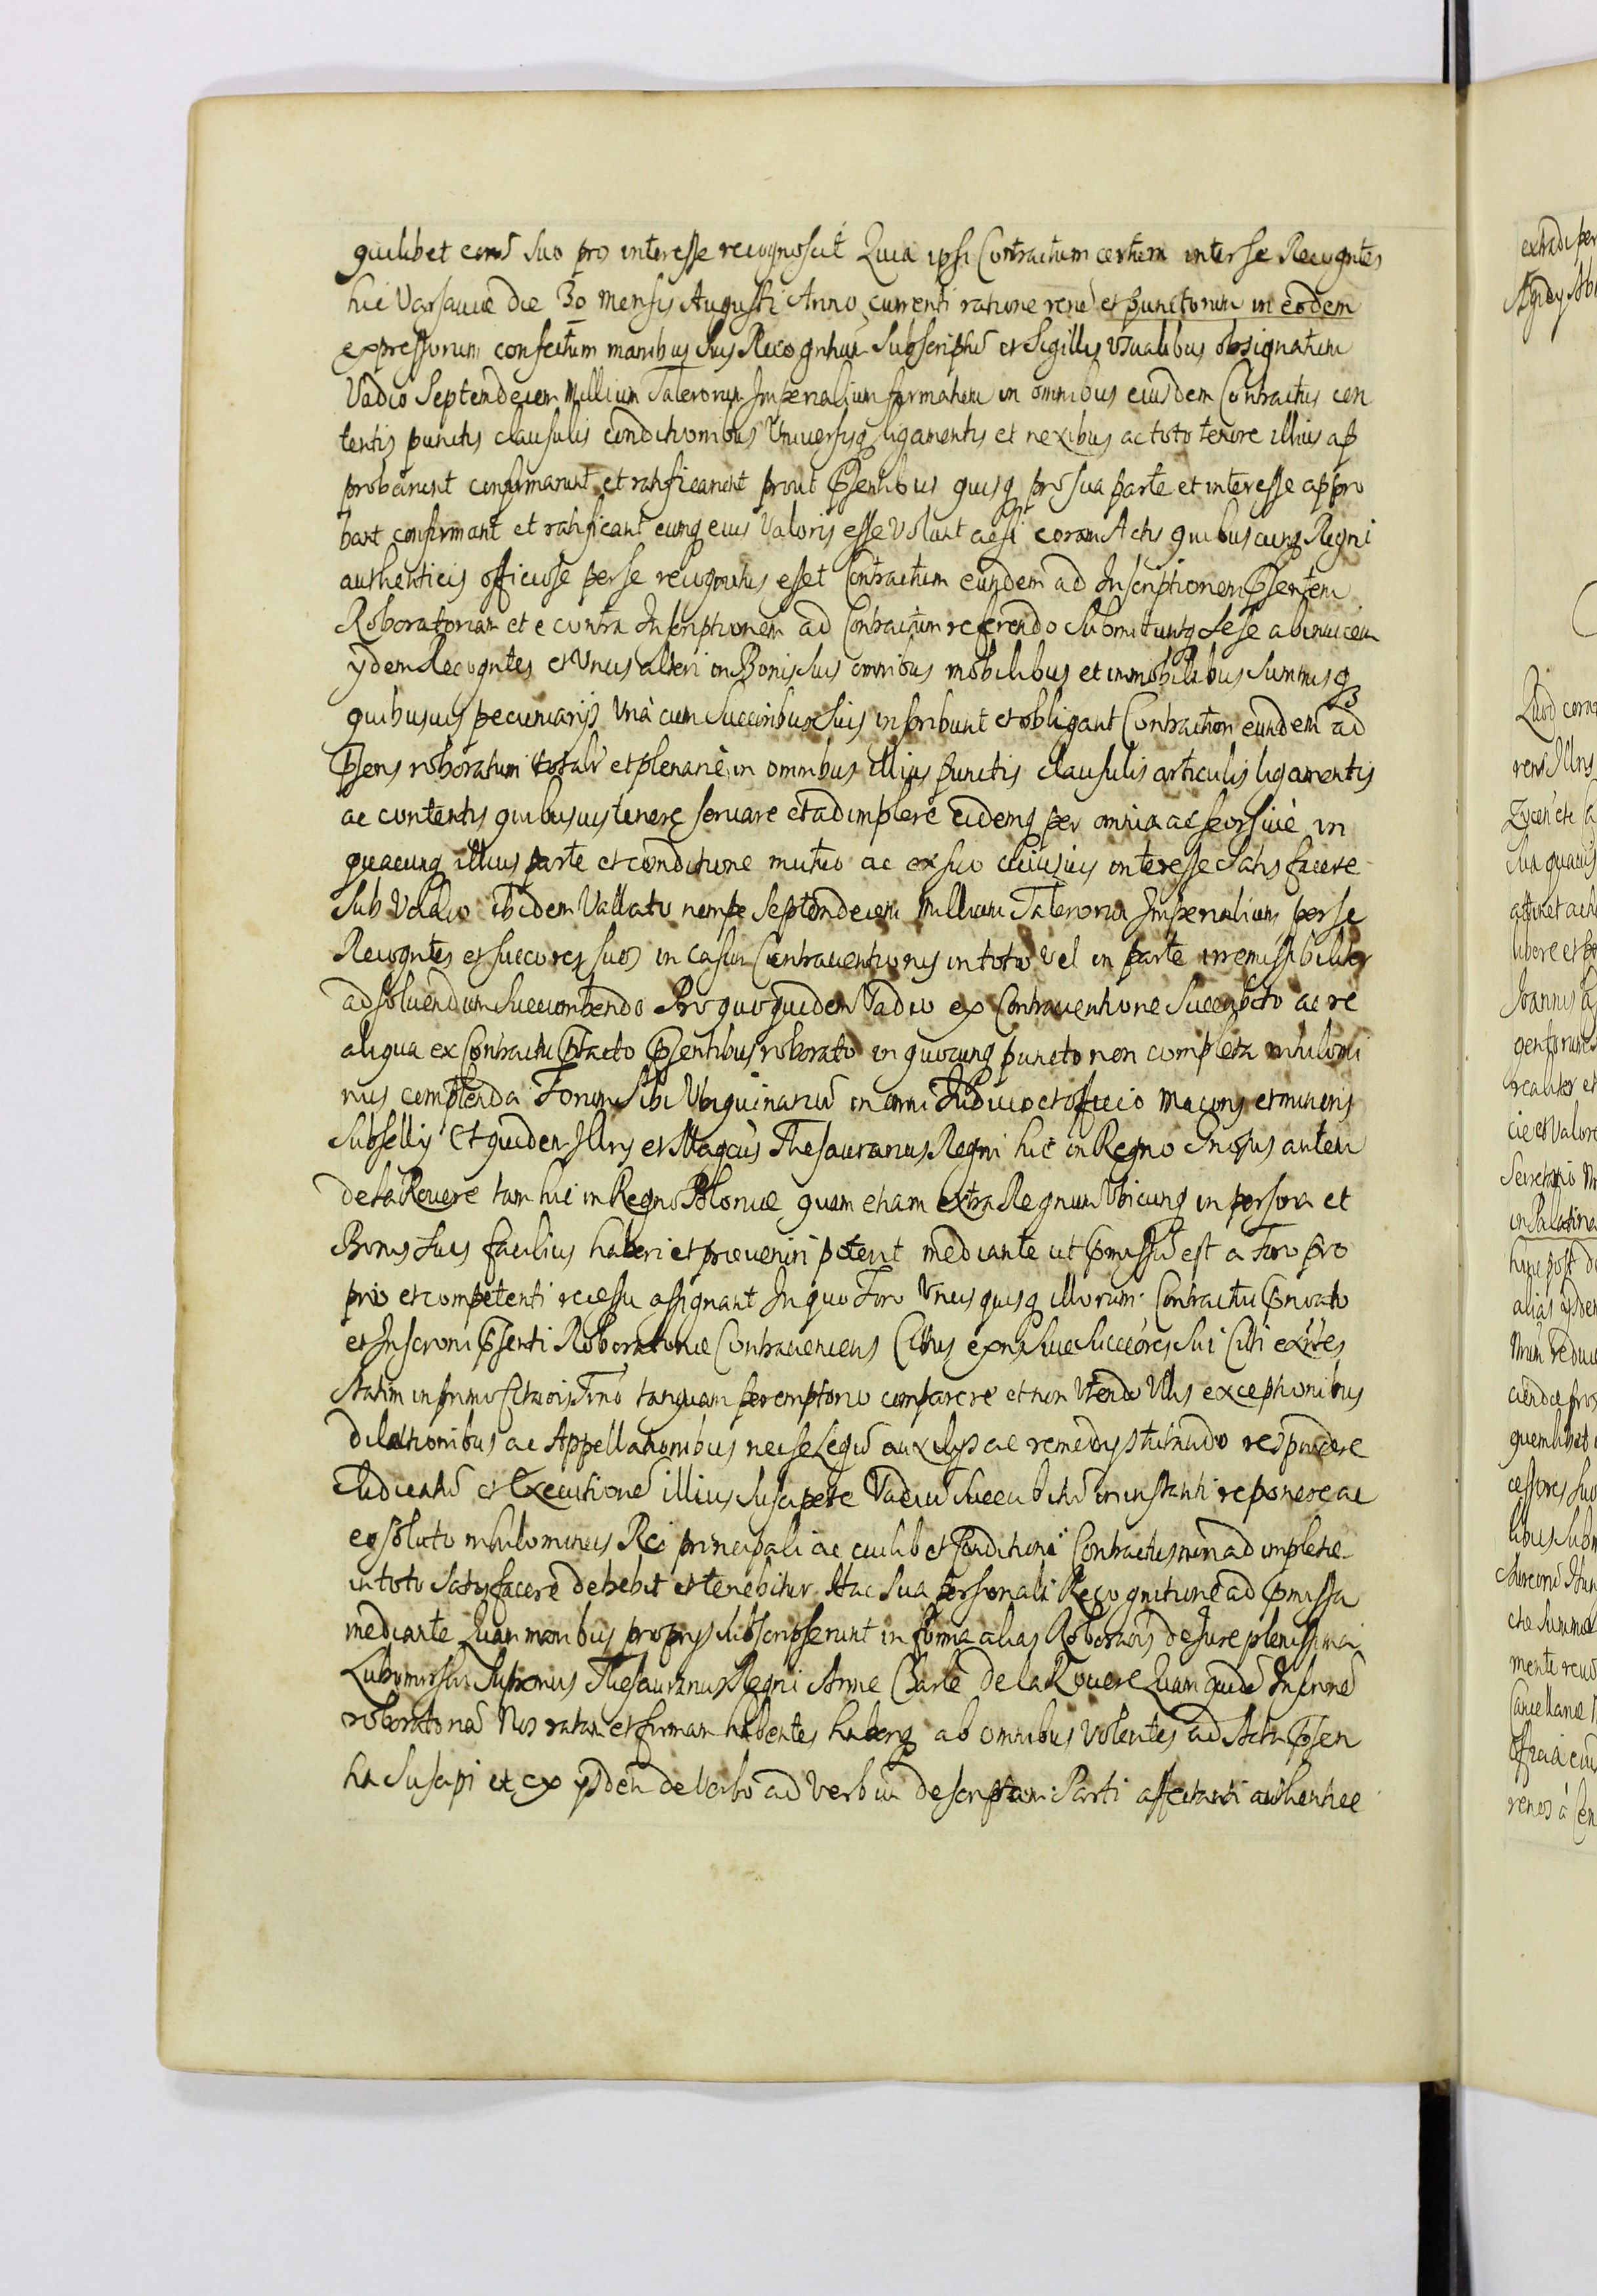 quilibet eorũ suo pro interesse recognoscit Quia ipsi Contractum certum inter se Recogntes
hic Varsaviæ die 30 Mensis Augusti Anno currenti ratione rerũ et punctorum in eodem
expressorum confectum manibus suis Recogntium Subscriptũ et Sigillis usualibus obsignatum
Vadio Septendecem Millium Talerorum Imperialium firmatum in omnibus eiusdem Contractus con
tentis punctis clausulis conditionibus Universisq ligamentis et nexibus ac toto tenore illius ap
probarunt confirmarunt et ratificarunt prout Psentibus quisq pro sua parte et interesse appro
bant confirmant et ratificant eumq eius Valoris esse Volunt acsi coram Actis quibuscunq Regni
authenticis officiose per se recognitus esset Contractum eundem ad Inscriptionem Psentem
Roboratoriam et e contra Inscriptionem ad Contractum referendo Submittuntq sese abinuicem
ydem Recogntes et Unus alteri in Bonis suis omnibus mobilibus et immobilibus Summisq
quibusuis pecuniarijs Unà cum Succoribus suis inscribunt et obligant Contractum eundem ad
Psens roboratum totalr et plenarie in omnibus illius punctis clausulis articulis ligamentis
ac contentis quibusuis tenere seruare et adimplere eidemq per omnia ac seorsiuè in
quacunq illius parte et conditione mutuo ac ex suo cuiusuis interesse Satisfacere
Sub Vadio ibidem Vallato nempe Septendecem Millium Talerorum Imperialium per se
Recogntes et succores suos in casum Contrauentionis in toto Vel in parte irremissibiliter
ad soluendum succumbendo Pro quo quidem Vadio ex Contrauentione Succubito ac re
aliqua ex Contractu Ptacto Psentibus roborato in quocunq puncto non completa nihilomi
nus complenda Forum Sibi Ubiquinariũ in omni Iudicio et officio Maioris et minoris
Subsellij Et quidem Illris et Magcus Thesaurarius Regni hic in Regno Gnosus autem
de la Rouere tam hic in Regno Poloniæ quam etiam extra Regnum Ubicunq in persona et
Bonis suis facilius haberi et præueniri poterit mediante ut Pmissũ est a Foro pro
prio et competenti recessu assignant In quo Foro Unusquisq illorum Contractui Priuato
et Inscroni Psenti Roboratoriæ Contraueniens Citus ex nũc siue succores sui Citi exñtes
Statim in primo Citaois Tmo tanquam peremptorio comparere et non Utendo Ullis exceptionibus
dilationibus ac Appellationibus nec se Legũ auxilijs ac remedijs tuendo respondere
Iudicatũ et Executionẽ illius suscipere Vadiũ succubitũ in instanti reponere ac
eo soluto nihilominus Rei principali ac cuilibet Conditioni Contractus non adimpletæ
in toto Satisfacere debebit et tenebitur Hac Sua personali Recognitione ad Pmissa
mediante Quam manibus proprijs subscripserunt in forma alias Roboraois de Jure plenissima
Lubomirski Supremus Thesaurarius Regni Anne Charle de la Rouere Quam quidẽ Inscronẽ
roboratoriã Nos ratam et firmam habentes haberiq ab omnibus Volentes ad Acta Psen
tia Suscipi et ex ijsdem de Verbo ad Verbum descriptam Parti affectanti authentice